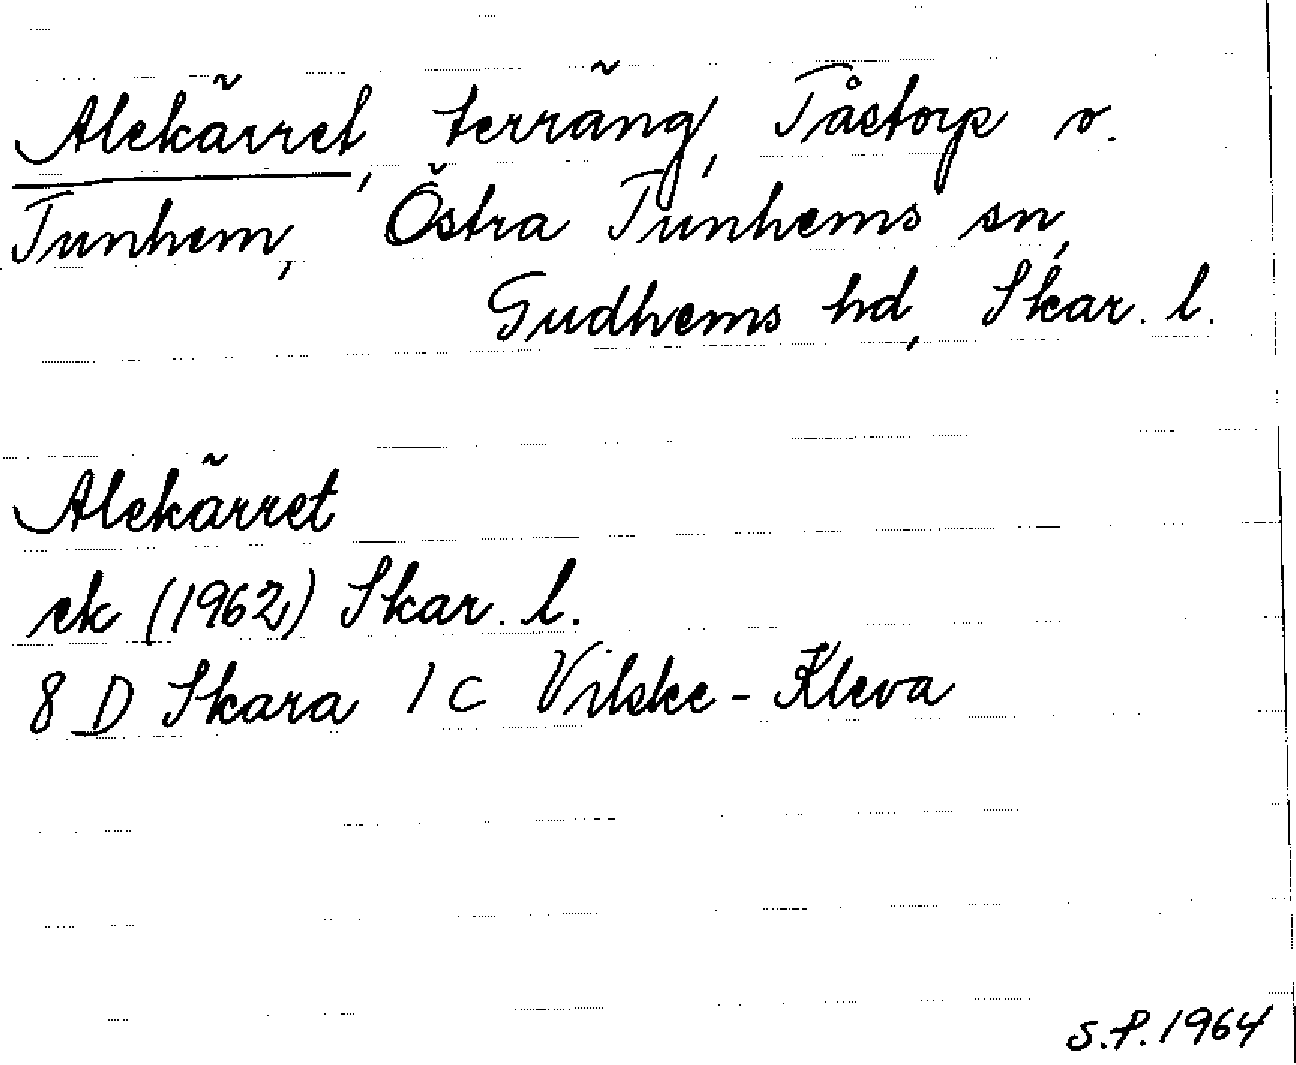 Alekärret, terräng, Tåstorp o.
Tunhem, Östra Tunhems sn,
Gudhems hd, Skar. l.
Alekärret
ek (1962) Skar. l.
8 D Skara 1 C Vilske-Kleva
S.P. 1964